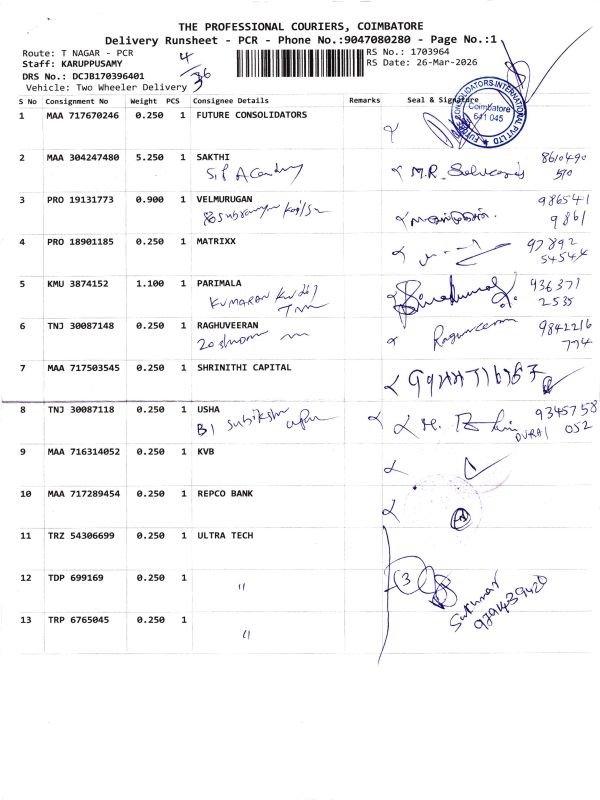 THE PROFESSIONAL COURIERS, COIMBATORE
Delivery Runsheet - PCR - Phone No.:9047080280 - Page No.:1
Route: T NAGAR - PCR
Staff: KARUPPUSAMY
DRS No.: DCJB170396401
Vehicle: Two Wheeler Delivery
4/36
RS No.: 1703964
RS Date: 26-Mar-2026
S No Consignment No Weight PCS Consignee Details Remarks Seal & Signature
1 MAA 717670246 0.250 1 FUTURE CONSOLIDATORS
CONSOLIDATORS INTERNATIONAL PVT LTD
Coimbatore
641 045
2 MAA 304247480 5.250 1 SAKTHI
M.R. 8610490
510
3 PRO 19131773 0.900 1 VELMURUGAN
986541
9861
4 PRO 18901185 0.250 1 MATRIXX
97892
54544
5 KMU 3874152 1.100 1 PARIMALA
KUMARAN
936371
2535
6 TNJ 30087148 0.250 1 RAGHUVEERAN
Raguveeran 9842216
774
7 MAA 717503545 0.250 1 SHRINITHI CAPITAL
8 TNJ 30087118 0.250 1 USHA
B1 Subiksha
9345758
DURAI 052
9 MAA 716314052 0.250 1 KVB
10 MAA 717289454 0.250 1 REPCO BANK
11 TRZ 54306699 0.250 1 ULTRA TECH
12 TDP 699169 0.250 1 "
3
Sukumar
9791439420
13 TRP 6765045 0.250 1 "